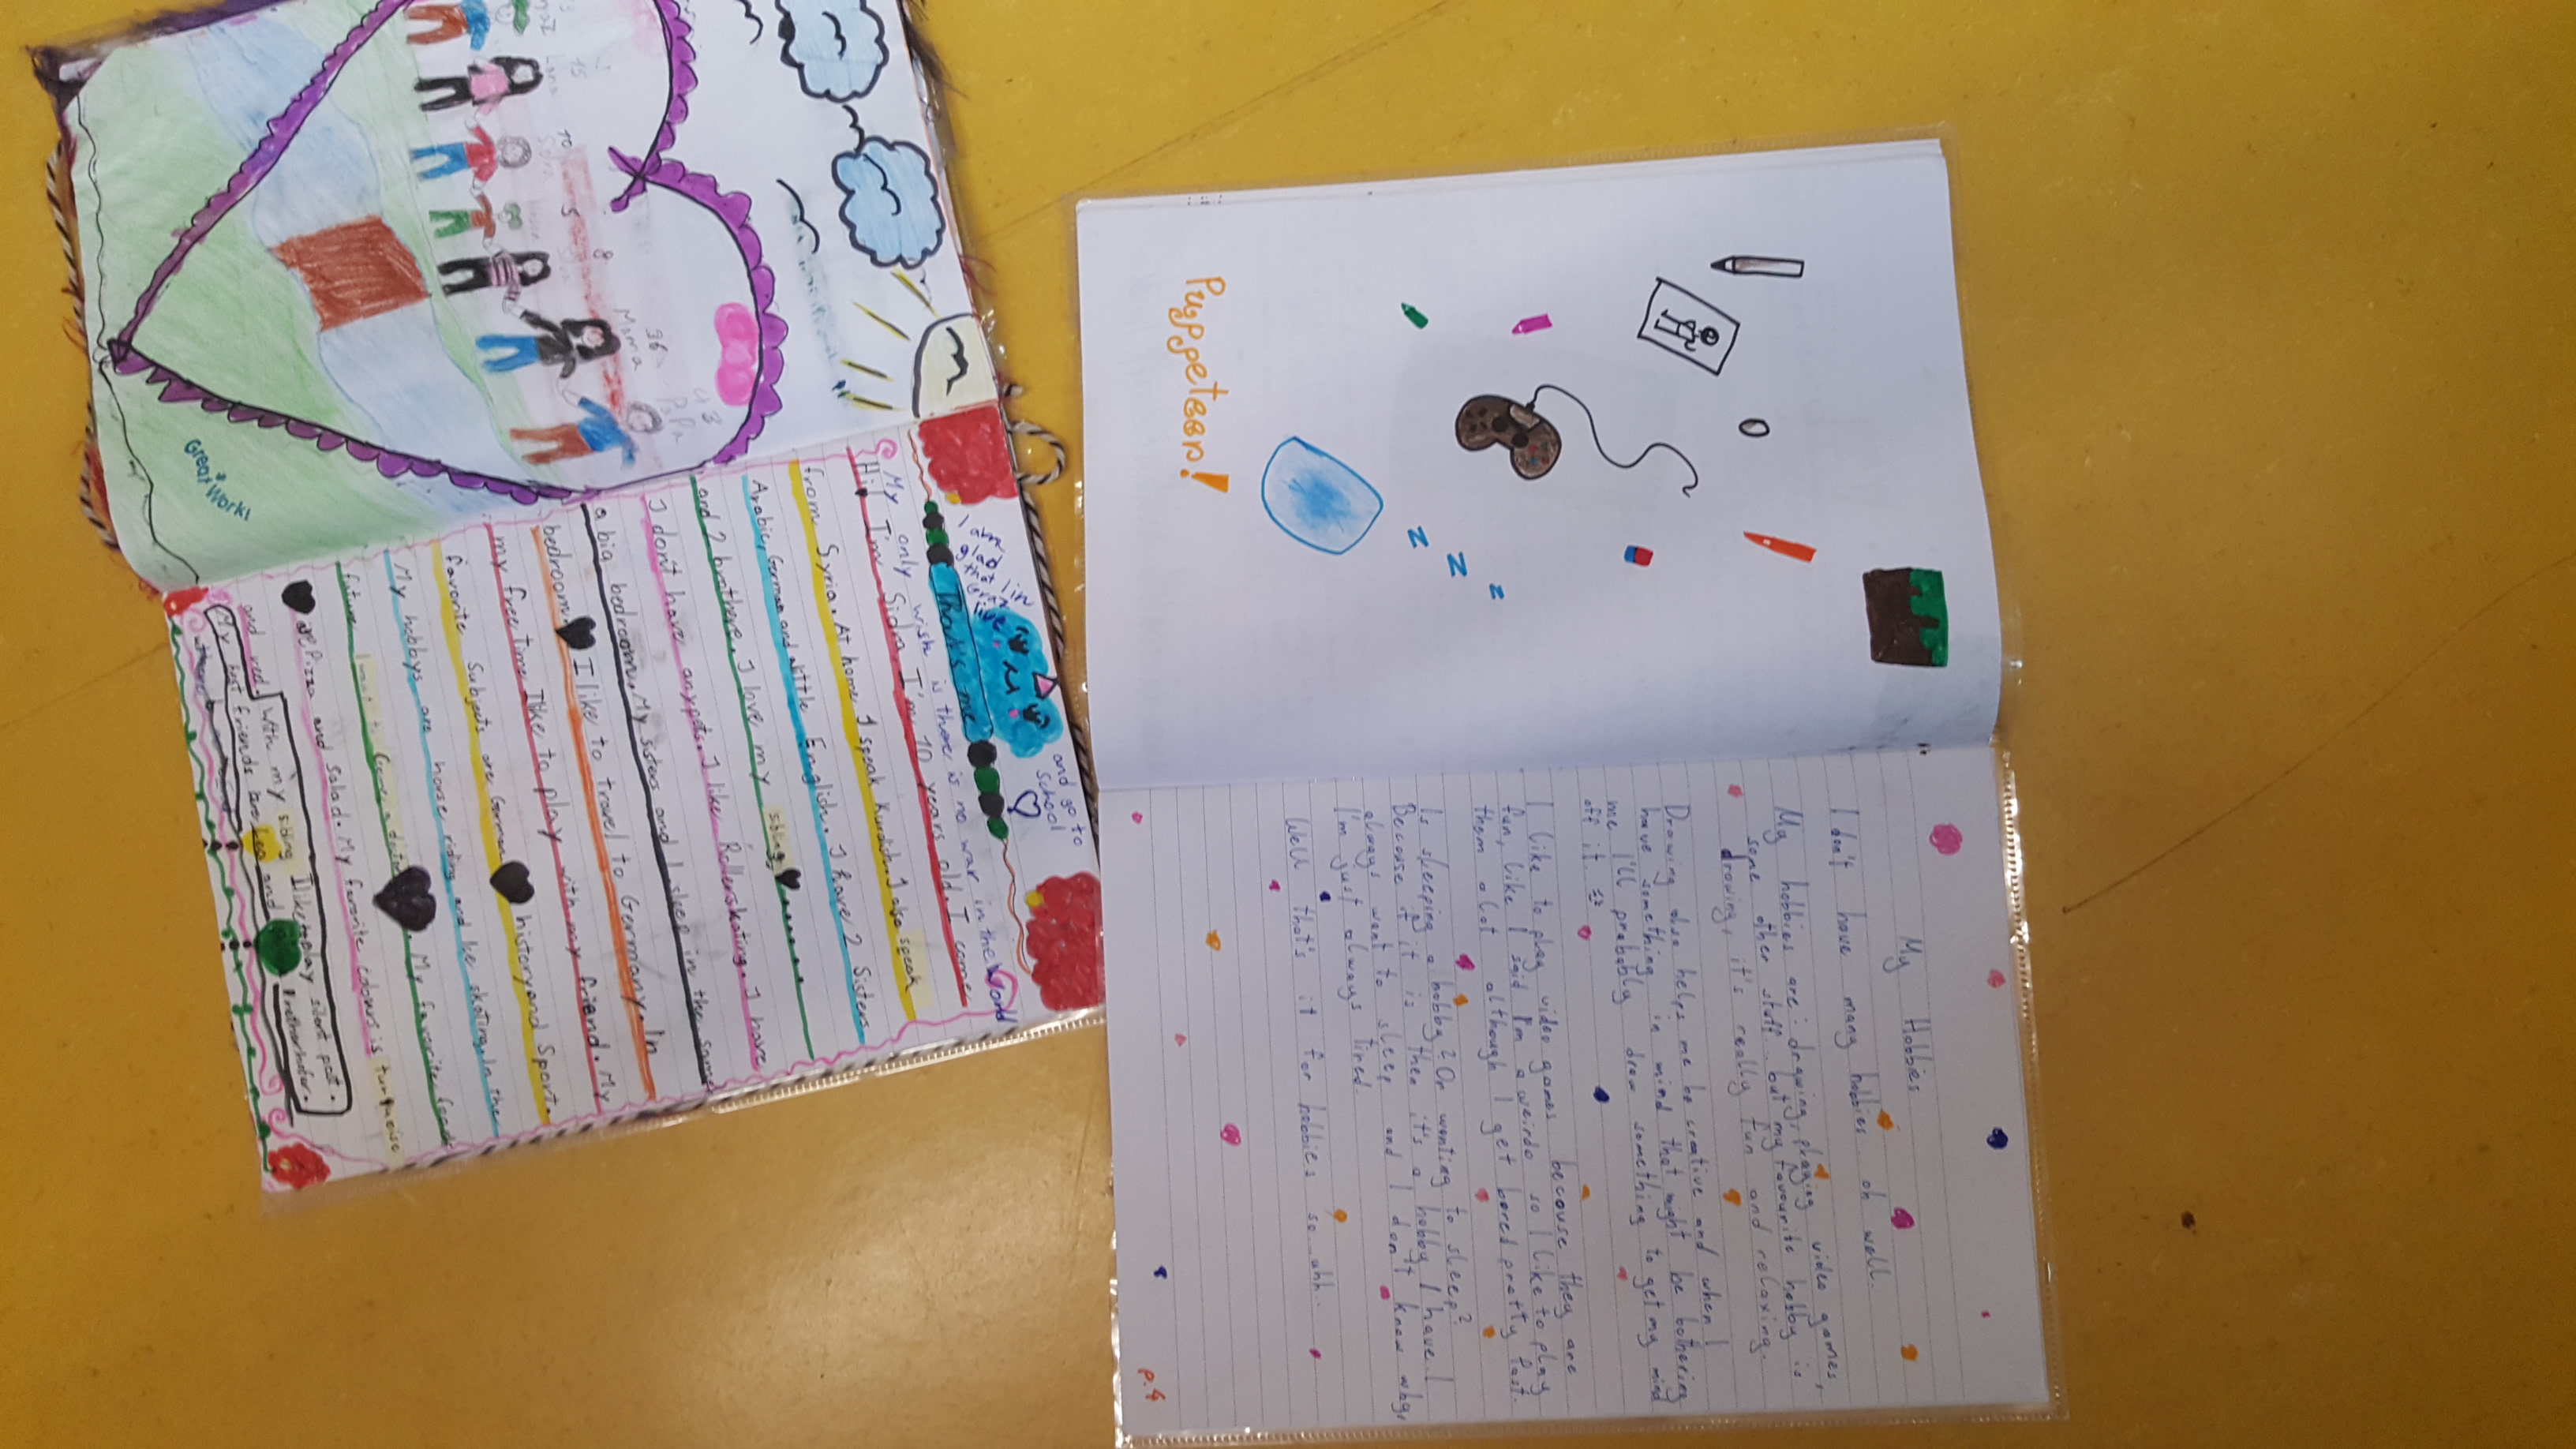 Great Work!
Mama
Papa
I am
glad
that I in
live
and go to
school
That's me
My only wish is there is no war in the world
Hi! I'm Sidra. I'm 10 years old. I come
from Syria. At home, I speak Kurdish. I also speak
Arabic, German and a little English. I have 2 Sisters
and 2 brothers. I love my sibling
I don't have any pets. I like Rollerskating. I have
a big bedroom. My sisters and I sleep in the same
bedroom. I like to travel to Germany. In
my free time I like to play with my friend. My
favorite Subjects are German history and Sport.
My hobbys are horse riding and ice skating. In the
future I want to
My favorite food
Pizza and salad. My favorite colours is turquoise
and red. With my sibling I like to play silent post.
My best friends are Lea and
Puppeteer!
z
z
z
My Hobbies
I don't have many hobbies.. oh well..
My hobbies are: drawing, playing video games,
some other stuff.. but my favourite hobby is
drawing, it's really fun and relaxing.
Drawing also helps me be creative and when I
have something in mind that might be bothering
me I'll probably draw something to get my mind
off it.
I like to play video games because they are
fun, like I said I'm a weirdo so I like to play
them a lot although I get bored pretty fast.
Is sleeping a hobby? Or wanting to sleep?
Because if it is then it's a hobby I have. I
always want to sleep and I don't know why,
I'm just always tired.
Well that's it for hobbies so..ahh..
p.4